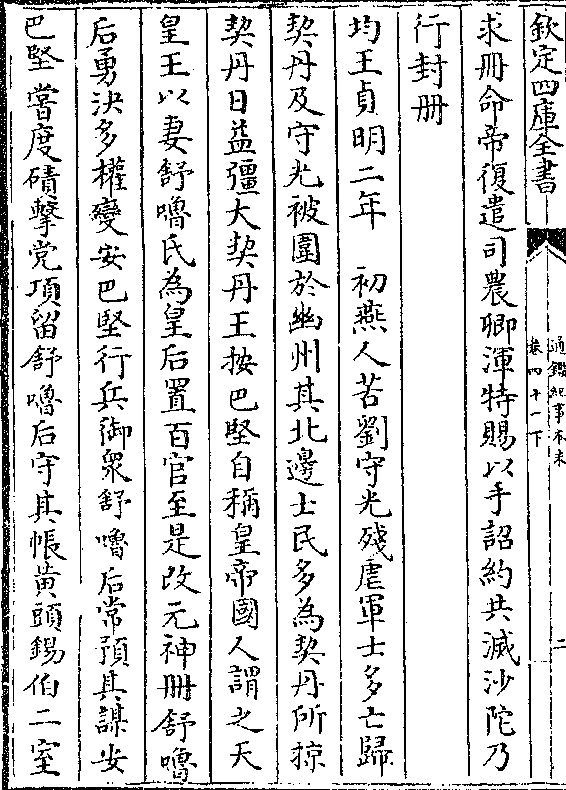 欽定四庫全書
通鑑紀事本末
卷四十一下
二
求冊命帝復遣司農卿渾特賜以手詔約共滅沙陀乃
行封冊
均王貞明二年　初燕人苦劉守光殘虐軍士多亡歸
契丹及守光被圍於幽州其北邊士民多為契丹所掠
契丹日益彊大契丹王按巴堅自稱皇帝國人謂之天
皇王以妻舒嚕氏為皇后置百官至是改元神冊舒嚕
后勇決多權變安巴堅行兵御衆舒嚕后常預其謀安
巴堅嘗度磧擊党項留舒嚕后守其帳黃頭錫伯二室